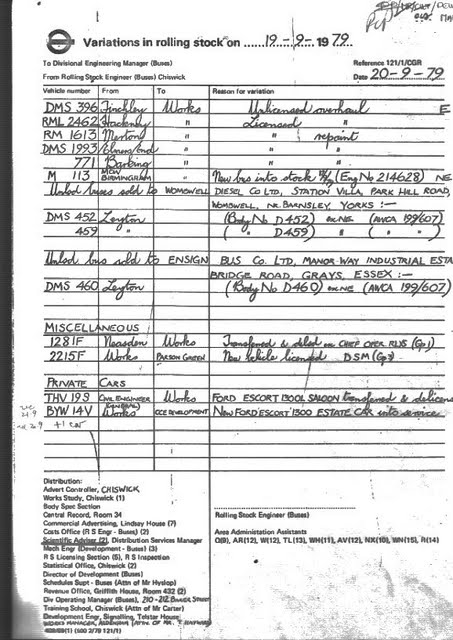 Variations in rolling stock on 19-9-1979
To Divisional Engineering Manager (Buses) Reference 121/1/CGR
From Rolling Stock Engineer (Buses) Chiswick Date 20-9-79
Vehicle number From To Reason for variation
DMS 396 Finchley Works Unlicensed overhaul E
RML 2462 Hackney " Licensed "
RM 1613 Merton " " repaint
DMS 1993 Elmers End " " "
771 Barking " " "
M 113 MCW BIRMINGHAM " New bus into stock (Eng No 214628) NE
Unlcd buses sold to WOMBWELL DIESEL CO LTD, STATION VILLA, PARK HILL ROAD,
WOMBWELL, NR. BARNSLEY, YORKS :-
DMS 452 Leyton (Body No D452) ex NE (AWCA 199/607)
459 " ( " D459) " ( " " )
Unlcd bus sold to ENSIGN BUS CO. LTD, MANOR WAY INDUSTRIAL ESTA
BRIDGE ROAD, GRAYS, ESSEX :-
DMS 460 Leyton (Body No D460) ex NE (AWCA 199/607)
MISCELLANEOUS
1281F Neasden Works Transferred & delcd on CHEF OPER RLYS (Gp 1)
2215F Works PARSON GREEN New vehicle licensed DSM (Gp 3)
PRIVATE CARS
THV 19S CIVIL ENGINEER (GENERAL) Works FORD ESCORT 1300L SALOON transferred & delicens
BYW 14V Works CCE DEVELOPMENT New FORD ESCORT 1300 ESTATE CAR into service
+1 car
Distribution:
Advert Controller, CHISWICK
Works Study, Chiswick (1)
Body Spec Section
Central Record, Room 34 Rolling Stock Engineer (Buses)
Commercial Advertising, Lindsay House (7)
Costs Office (R S Engr - Buses) (2) Area Administation Assistants
Scientific Adviser (2), Distribution Services Manager Q(8), AR(12), W(12), TL(13), WH(11), AV(12), NX(10), WN(15), R(14)
Mech Engr (Development - Buses) (3)
R S Licensing Section (5), R S Inspection
Statistical Office, Chiswick (2)
Director of Development
Schedules Supt - Buses (Attn of Mr Hyslop)
Revenue Office, Griffith House, Room 432 (2)
Div Operating Manager (Bus), 210-212 BAKER STREET
Training School, Chiswick (Attn of Mr Carter)
Development Engr, Signalling, Telstar House
WORKS MANAGER, ALDENHAM (ATTN. OF MR.